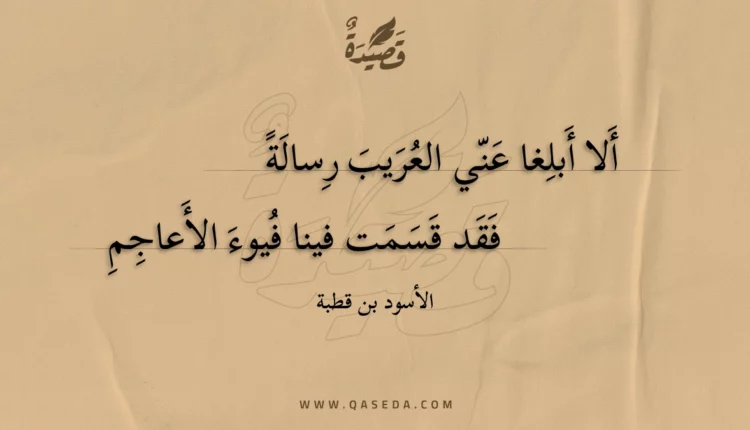 قَصِيْدَةٌ
أَلا أَبلِغا عَنّي العُرَيبَ رِسالَةً
فَقَد قَسَمَت فينا فُيوءَ الأَعاجِمِ
الأسود بن قطبة
WWW.QASEDA.COM